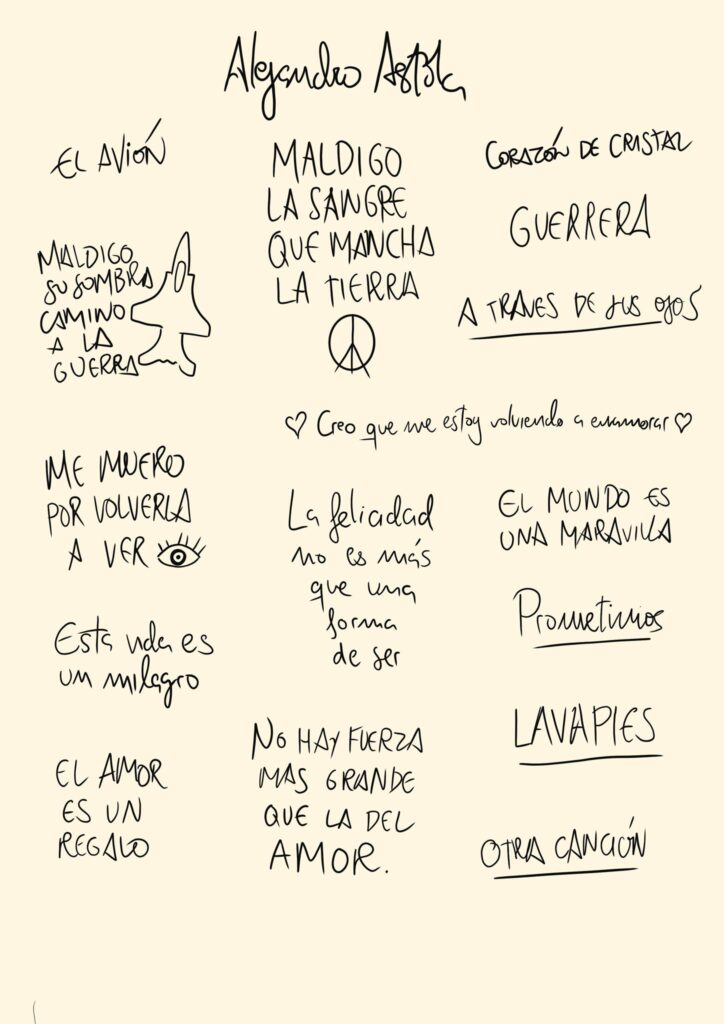 Alejandro Astola
EL AVIÓN
MALDIGO
SU SOMBRA
CAMINO
A LA
GUERRA
ME MUERO
POR VOLVERLA
A VER
Esta vida es
un milagro
EL AMOR
ES UN
REGALO
MALDIGO
LA SANGRE
QUE MANCHA
LA TIERRA
Creo que me estoy volviendo a enamorar
La felicidad
no es más
que una
forma
de ser
NO HAY FUERZA
MAS GRANDE
QUE LA DEL
AMOR.
CORAZÓN DE CRISTAL
GUERRERA
A TRAVES DE SUS OJOS
EL MUNDO ES
UNA MARAVILLA
Prometimos
LAVAPIES
OTRA CANCIÓN